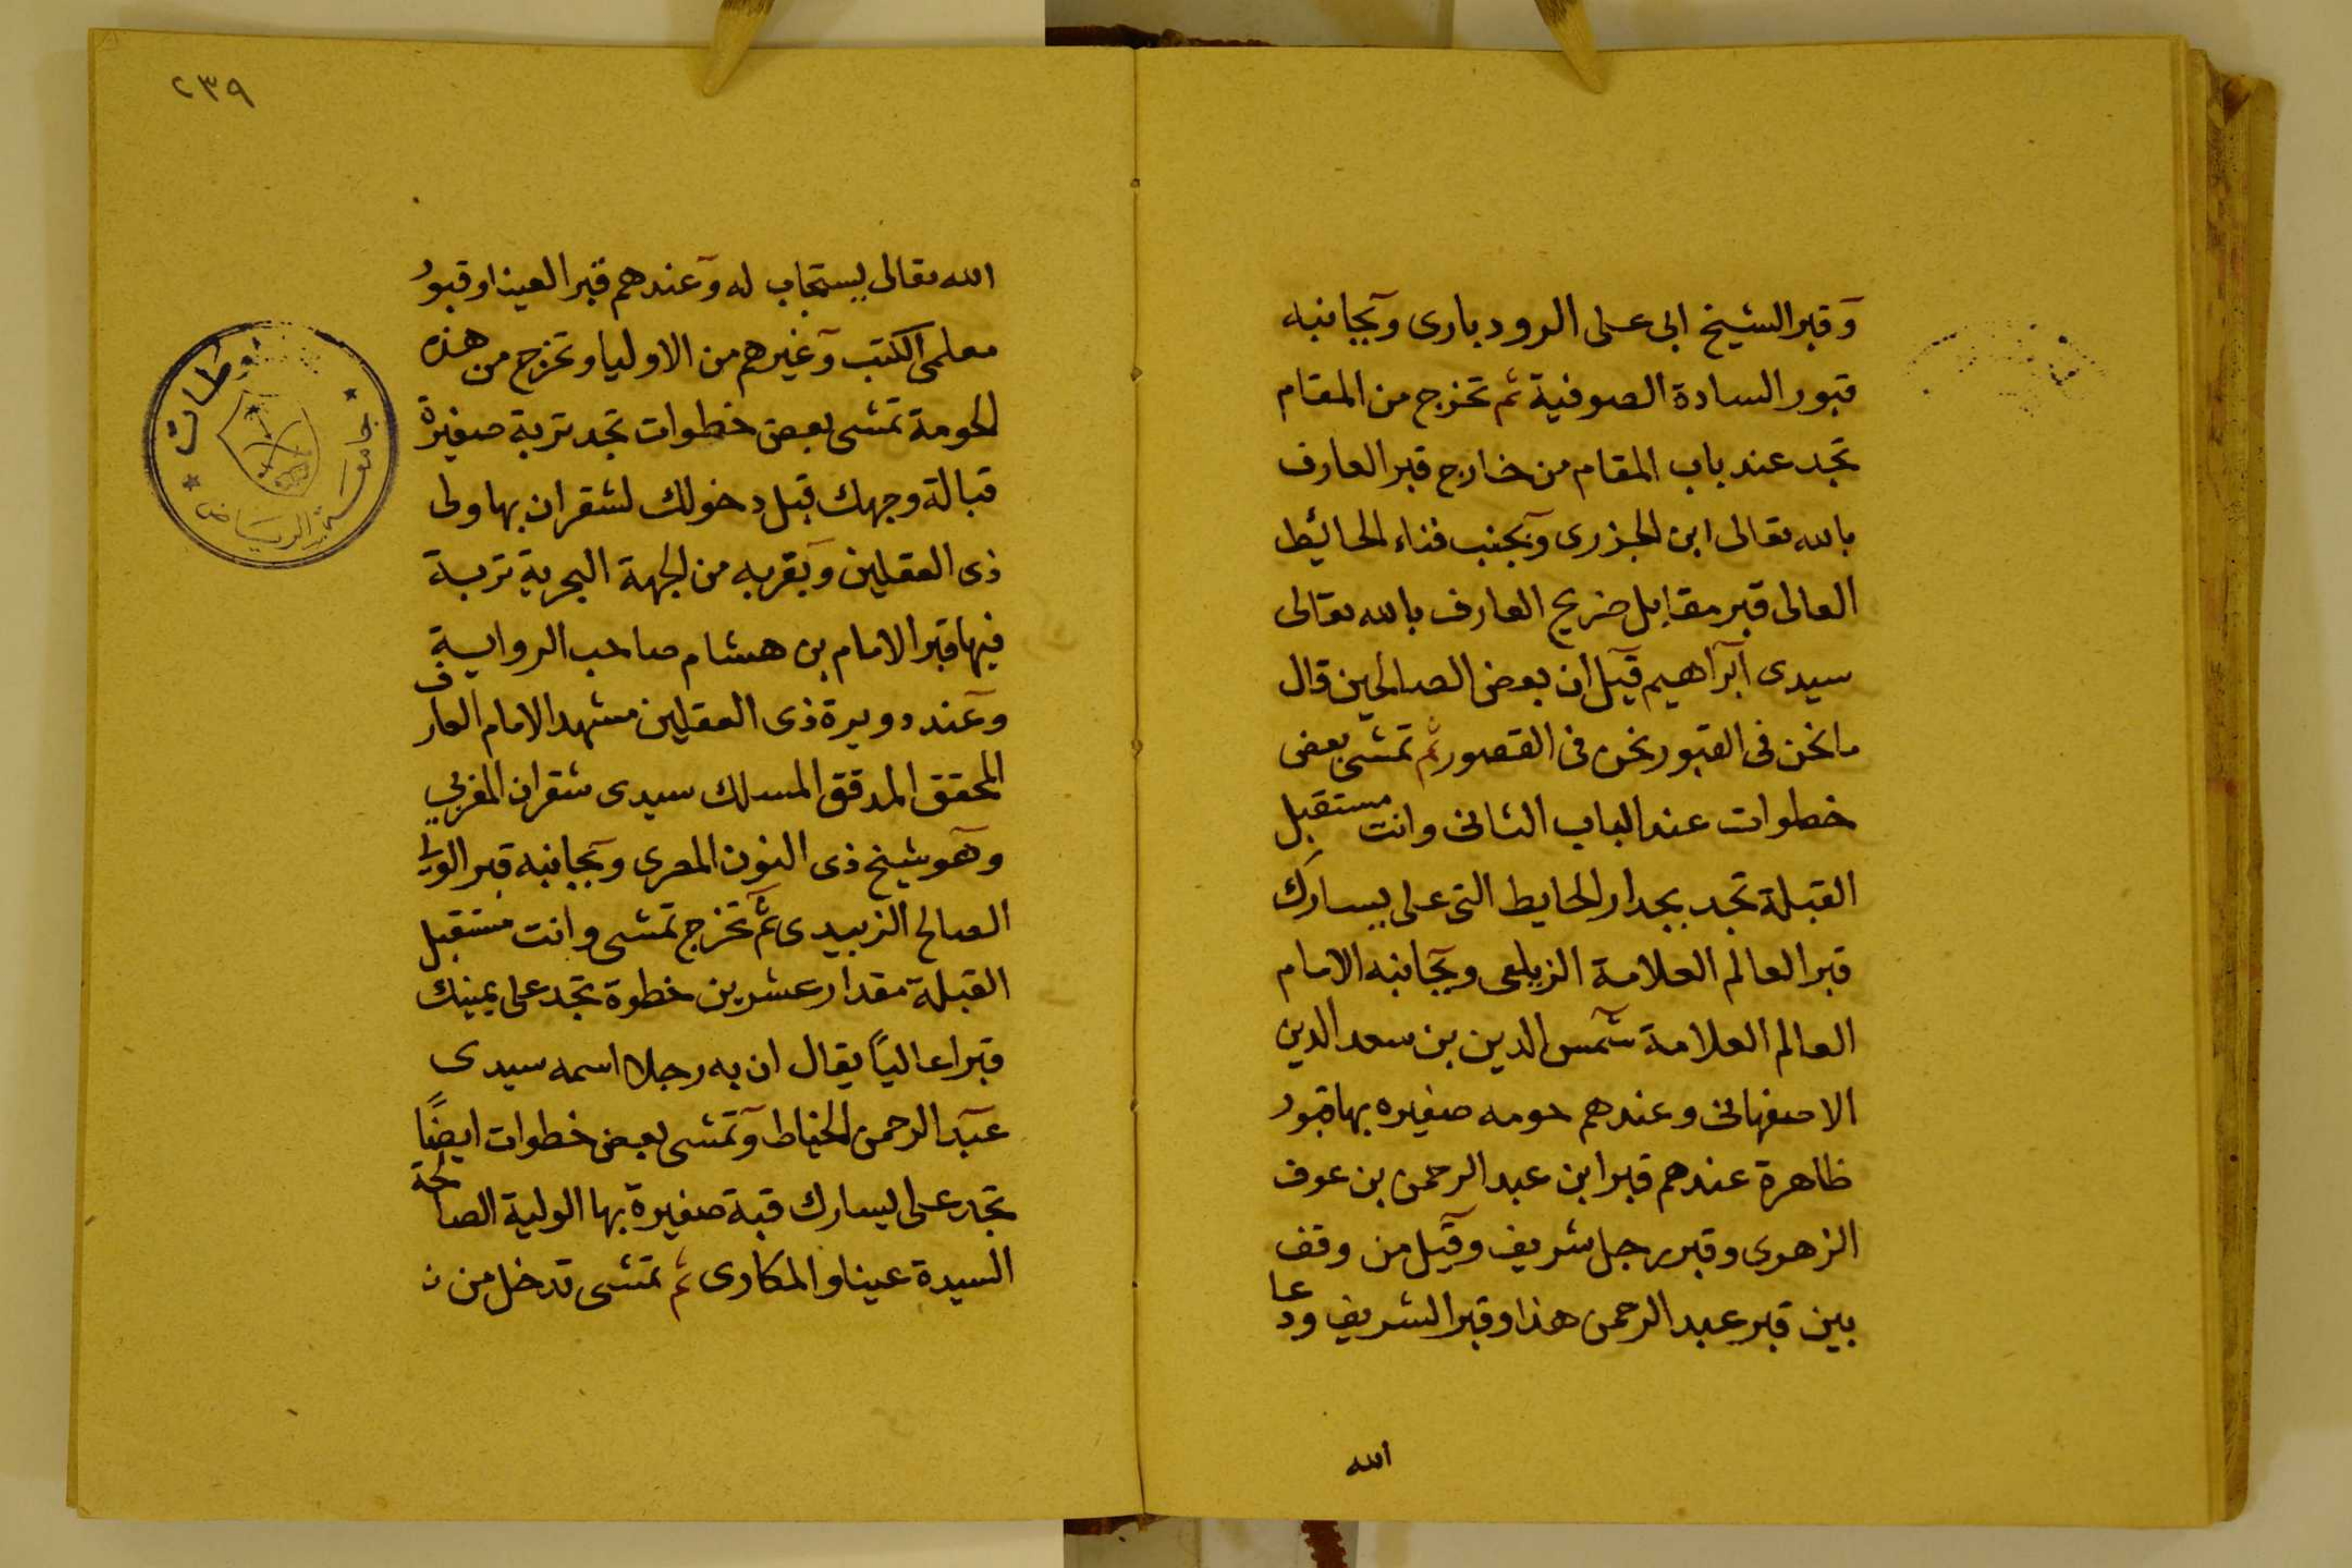 وقبر الشيخ ابى على الرودبارى وبجانبه
قبور السادة الصوفية ثم تخرج من المقام
تجد عند باب المقام من خارج قبر العارف
بالله تعالى ابن الجزرى وبجنب فناء الحائيط
العالى قبر مقابل ضريح العارف بالله تعالى
سيدى ابراهيم قيل ان بعض الصالحين قال
ما نحن فى القبور نحن فى القصور ثم تمشى بعض
خطوات عند الباب الثانى وانت مستقبل
القبلة تجد بجدار الحايط التى على يسارك
قبر العالم العلامة الزيلعى وبجانبه الامام
العالم العلامة شمس الدين بن سعد الدين
الاصفهانى وعندهم حومه صغيره بها قبور
ظاهرة عندهم قبر ابن عبد الرحمن بن عوف
الزهرى وقبر رجل شريف وقيل من وقف
بين قبر عبد الرحمن هذا وقبر الشريف ودعا
الله
٢٣٩
الله تعالى يستجاب له وعندهم قبر العينا وقبور
معلمى الكتب وغيرهم من الاوليا وتخرج من هذه
الحومة تمشى بعض خطوات تجد تربة صغيرة
قبالة وجهك قبل دخولك لشقران بها ولى
ذى العقلين وبقربه من الجهة البحرية تربة
فيها قبر الامام بن هشام صاحب الرواية
وعند دويرة ذى العقلين مشهد الامام العارف
المحقق المدقق المسلك سيدى شقران المغربي
وهو شيخ ذى النون المصرى وبجانبه قبر الولى
الصالح الزبيدى ثم تخرج تمشى وانت مستقبل
القبلة مقدار عشرين خطوة تجد على يمينك
قبرا عالياً يقال ان به رجلا اسمه سيدى
عبد الرحمن الخياط وتمشى بعض خطوات ايضًا
تجد على يسارك قبة صغيرة بها الولية الصالحة
السيدة عينا والمكارى ثم تمشى تدخل من
جامعة الرياض